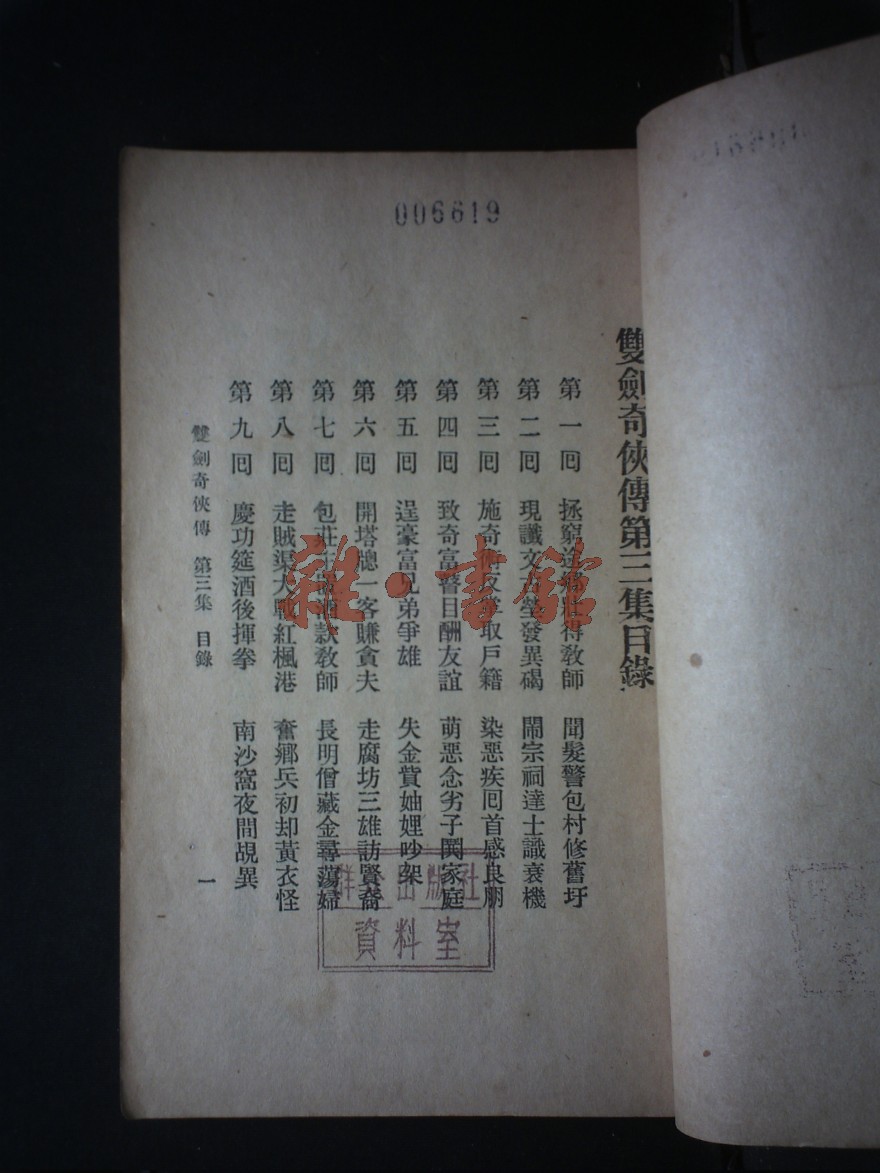 006619
雙劍奇俠傳第三集目錄
第一回 拯窮途 得教師 聞髮警包村修舊圩
第二回 現讖文 發異碣 鬧宗祠達士識衰機
第三回 施奇術反 取戶籍 染惡疾回首感良朋
第四回 致奇富 日酬友誼 萌惡念劣子鬩家庭
第五回 逞豪富兄弟爭雄 失金貲妯娌吵架
第六回 開塔 一客賺貪夫 走腐坊三雄訪賢裔
第七回 包莊 款教師 長明僧藏金尋蕩婦
第八回 走賊渠大戰紅楓港 奮鄉兵初却黃衣怪
第九回 慶功筵酒後揮拳 南沙窩夜間覘異
雙劍奇俠傳 第三集 目錄
一
雜·書館
群 出版社
資料室